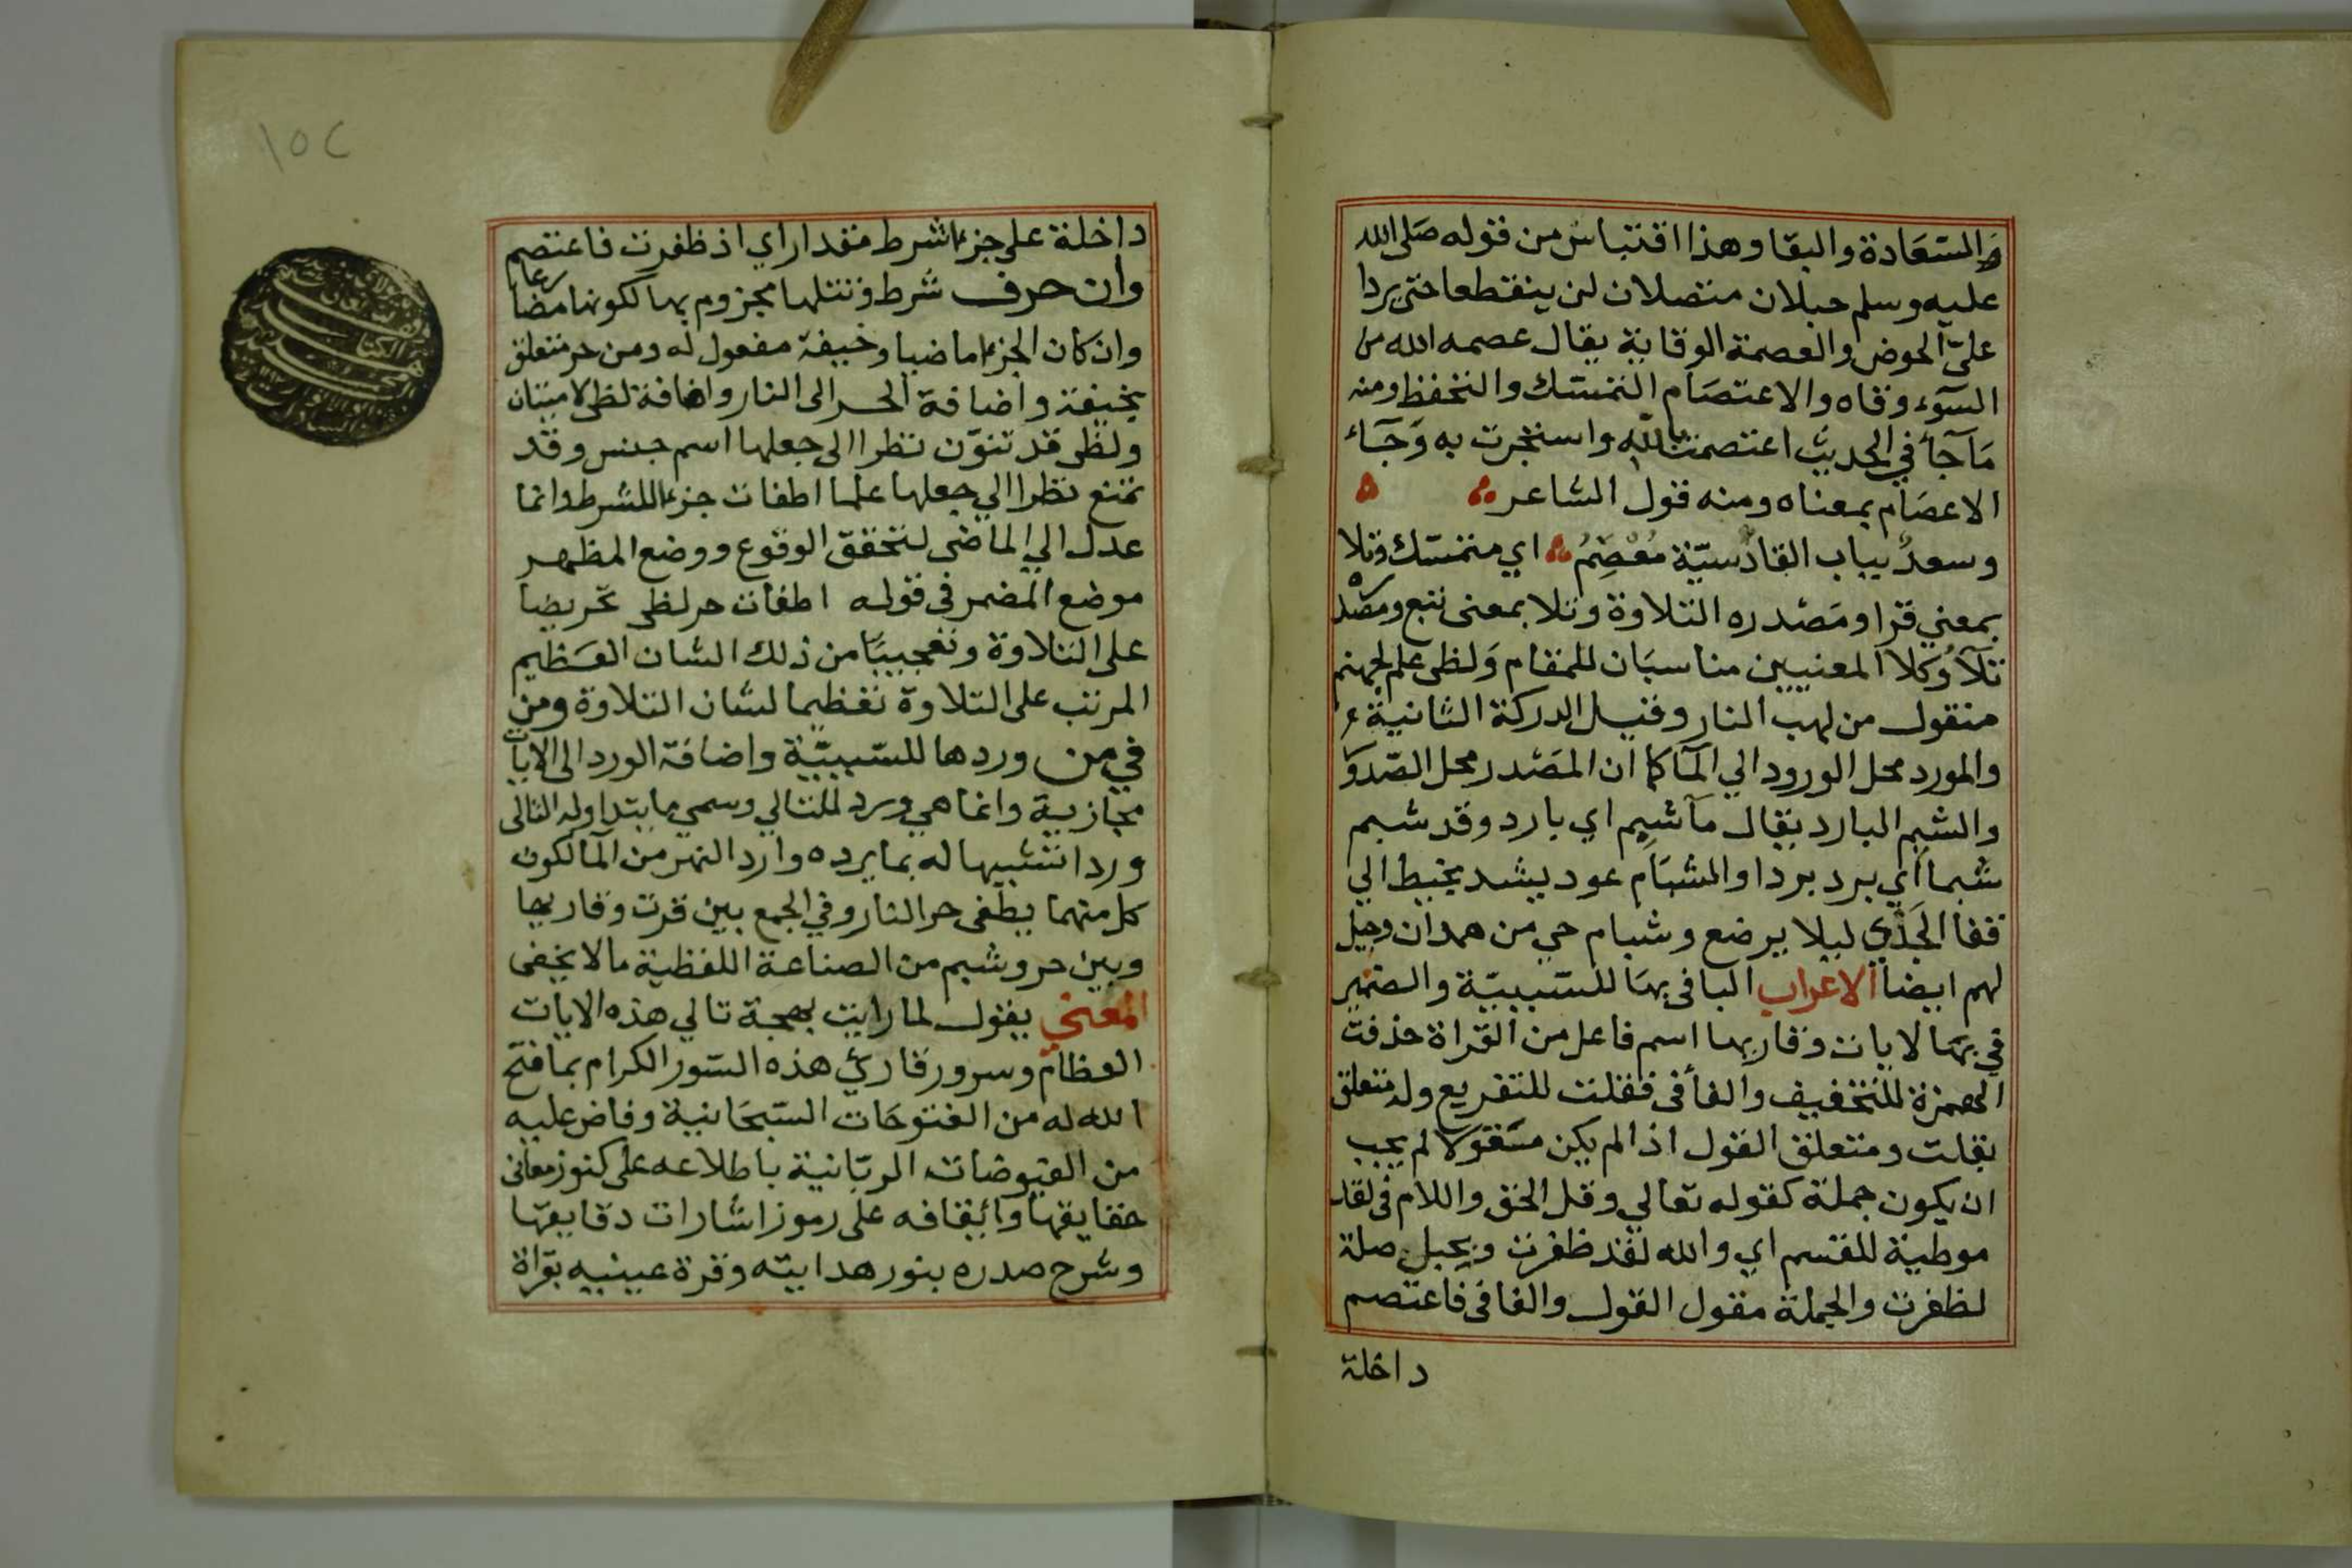 والسعادة والبقا وهذا اقتباس من قوله صلى الله
عليه وسلم حبلان متصلان لن ينقطعا حتى يردا
علىّ الحوض والعصمة الوقاية يقال عصمه الله من
السوء وقاه والاعتصام التمسك والتحفظ ومنه
مآجأ في الحديث اعتصمت بالله واستجرت به وجآء
الاعصام بمعناه ومنه قول الشاعر
وسعدٌ بباب القادسيّة مُعْصِمُ اي متمسك وتلا
بمعني قرا ومصدره التلاوة وتلا بمعنى تبع ومصدره
تلآ وكلا المعنيين مناسبان للمقام ولظى علم لجهنم
منقول من لهب النار وقيل الدركة الثانية
والمورد محل الورود الي المآ كما ان المصدر محل الصدور
والشبم البارد يقال مآ شبم اي بارد وقد شبم
شبما اي برد بردا والشبام عود يشد بخيط الي
قفا الجَدْي ليلا يرضع وشبام حي من همدان وجبل
لهم ايضا الاعراب البا فى بها للسببيّة والضمير
في بها للايات وقاريها اسم فاعل من القراة حذفت
الهمزة للتخفيف والفأ فى فقلت للتفريع وله متعلق
بقلت ومتعلق القول اذا لم يكن مقولا لم يجب
ان يكون جملة كقوله تعالي وقل الحق واللام فى لقد
موطية للقسم اي والله لقد ظفرت وبحبل صلة
لظفرت والجملة مقول القول والفا فى فاعتصم
داخلة
١٥٢
داخلة على جزاء شرط مقدر اي اذ ظفرت فاعتصم
وان حرف شرط وتتلها مجزوم بها لكونها مضارعا
وان كان الجزاء ماضيا وخيفة مفعول له ومن حر متعلق
بخيفة واضافة الحر الى النار واضافة لظى لاميتان
ولظى قد تنوّن نظرا الى جعلها اسم جنس وقد
تمنع نظرا الي جعلها علما اطفات جزاء للشرط وانما
عدل الي الماضى لتحقق الوقوع ووضع المظهر
موضع المضمر فى قوله اطفات حر لظى تحريضا
على التلاوة وتعجيبا من ذلك الشان العظيم
المرتب على التلاوة تعظيما لشان التلاوة ومن
في من وردها للسببيّة واضافة الورد الى الايات
مجازية وانما هي ورد للتالي وسمي ما يتداوله التالى
وردا تشبيها له بما يرده وارد النهر من المآ لكون
كل منهما يطفى حر النار وفي الجمع بين قرت وقاريها
وبين حر وشبم من الصناعة اللفظية ما لا يخفى
المعنى يقول لما رايت بهجة تالي هذه الايات
العظام وسرور قارئ هذه السور الكرام بما فتح
الله له من الفتوحات السبحانية وفاض عليه
من الفيوضات الربّانية باطلاعه على كنوز معانى
حقايقها وايقافه على رموز اشارات دقايقها
وشرح صدره بنور هدايته وقرة عينيه بقراة